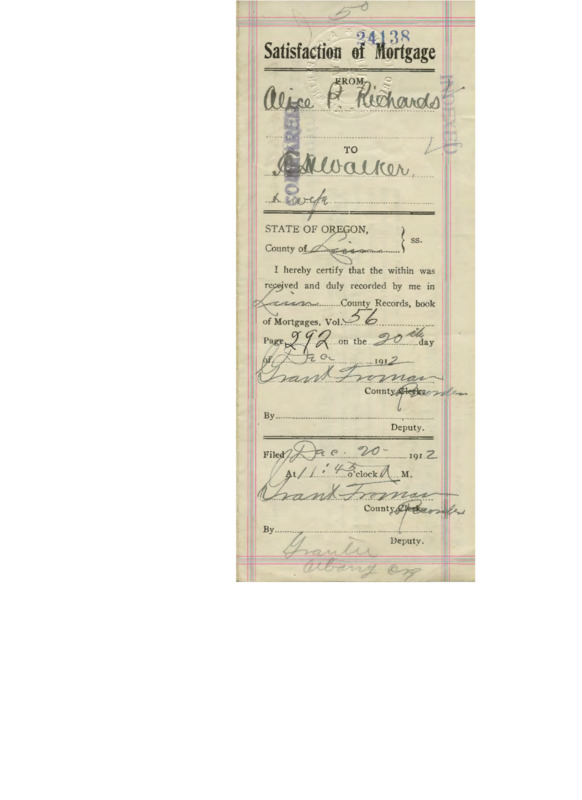 50
24138
Satisfaction of Mortgage
FROM
Alice P. Richards
INDEXED
COMPARED
TO
Walker,
& wife
STATE OF OREGON,
County of Linn } ss.
I hereby certify that the within was
received and duly recorded by me in
Linn County Records, book
of Mortgages, Vol. 56
Page 292 on the 20th day
of Dec 1912
Grant Froman
County Clerk Recorder
By
Deputy.
Filed Dec. 20- 1912
At 11:45 o'clock A M.
Grant Froman
County Clerk Recorder
By
Deputy.
Grantee
Albany Or